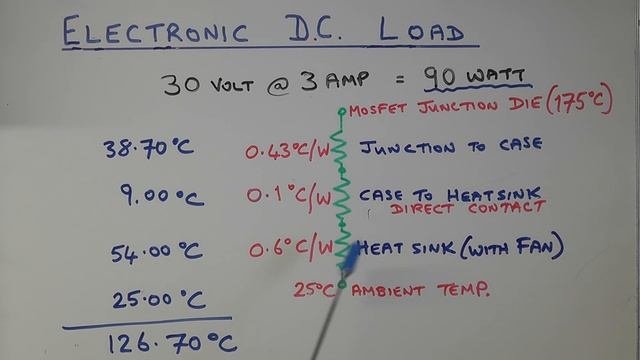 ELECTRONIC D.C. LOAD
30 VOLT @ 3 AMP = 90 WATT
MOSFET JUNCTION DIE (175°C)
38.70°C 0.43°C/W JUNCTION TO CASE
9.00°C 0.1°C/W CASE TO HEATSINK
DIRECT CONTACT
54.00°C 0.6°C/W HEAT SINK (WITH FAN)
25.00°C 25°C AMBIENT TEMP.
126.70°C